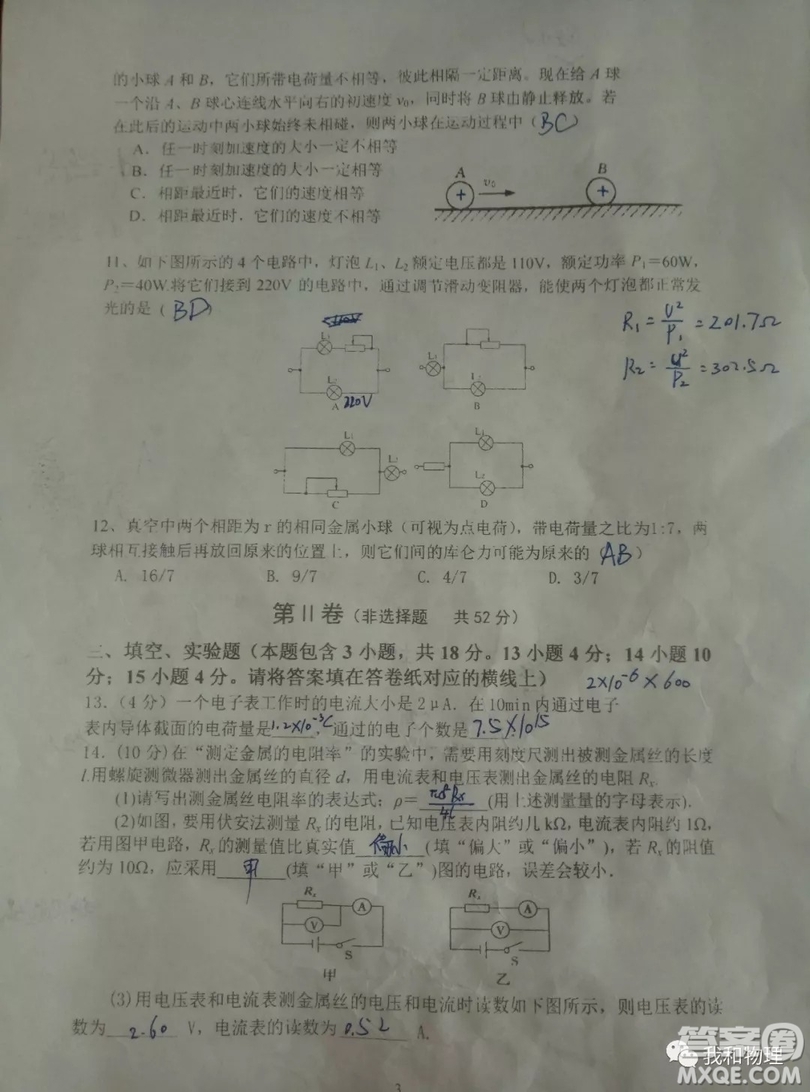 的小球 A 和 B，它们所带电荷量不相等，彼此相隔一定距离。现在给 A 球
一个沿 A、B 球心连线水平向右的初速度 v₀，同时将 B 球由静止释放。若
在此后的运动中两小球始终未相碰，则两小球在运动过程中（BC）
A．任一时刻加速度的大小一定不相等
B．任一时刻加速度的大小一定相等
C．相距最近时，它们的速度相等
D．相距最近时，它们的速度不相等
A B
+ v₀ +
11、如下图所示的 4 个电路中，灯泡 L₁、L₂ 额定电压都是 110V，额定功率 P₁＝60W，
P₂＝40W.将它们接到 220V 的电路中，通过调节滑动变阻器，能使两个灯泡都正常发
光的是（BD）
R₁ = U²/P₁ = 201.7Ω
R₂ = U²/P₂ = 302.5Ω
L₁
L₂
A 220V B
L₁ L₁
L₂
C D
12、真空中两个相距为 r 的相同金属小球（可视为点电荷），带电荷量之比为1:7，两
球相互接触后再放回原来的位置上，则它们间的库仑力可能为原来的（AB）
A. 16/7 B. 9/7 C. 4/7 D. 3/7
第 II 卷（非选择题 共 52 分）
二、填空、实验题（本题包含 3 小题，共 18 分。13 小题 4 分；14 小题 10
分；15 小题 4 分。请将答案填在答卷纸对应的横线上）
2×10⁻⁶×600
13.（4 分）一个电子表工作时的电流大小是 2μA．在 10min 内通过电子
表内导体截面的电荷量是1.2×10⁻³C 通过的电子个数是 7.5×10¹⁵
14.(10 分)在“测定金属的电阻率”的实验中，需要用刻度尺测出被测金属丝的长度
l.用螺旋测微器测出金属丝的直径 d，用电流表和电压表测出金属丝的电阻 Rₓ
(1)请写出测金属丝电阻率的表达式：ρ＝πd²Rₓ/4l (用上述测量量的字母表示).
(2)如图，要用伏安法测量 Rₓ 的电阻，已知电压表内阻约几 kΩ，电流表内阻约 1Ω，
若用图甲电路，Rₓ 的测量值比真实值 偏小 (填“偏大”或“偏小”)，若 Rₓ 的阻值
约为 10Ω，应采用 甲 (填“甲”或“乙”)图的电路，误差会较小．
Rₓ A Rₓ A
V V
S S
甲 乙
(3)用电压表和电流表测金属丝的电压和电流时读数如下图所示，则电压表的读
数为 2.60 V，电流表的读数为 0.52 A.
3
我和物理
答案圈
MXQE.COM